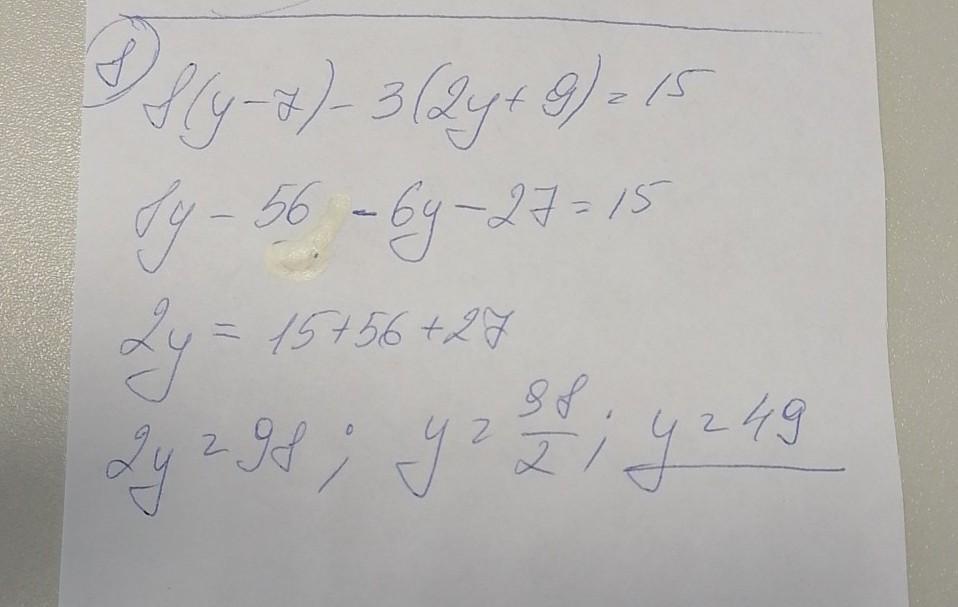 8
8(y-7)-3(2y+9)=15
8y-56-6y-27=15
2y=15+56+27
2y=98; y=98/2; y=49